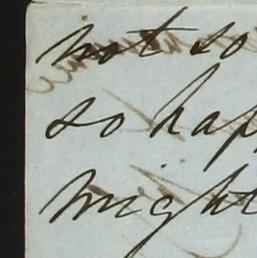 not so
so hap
might